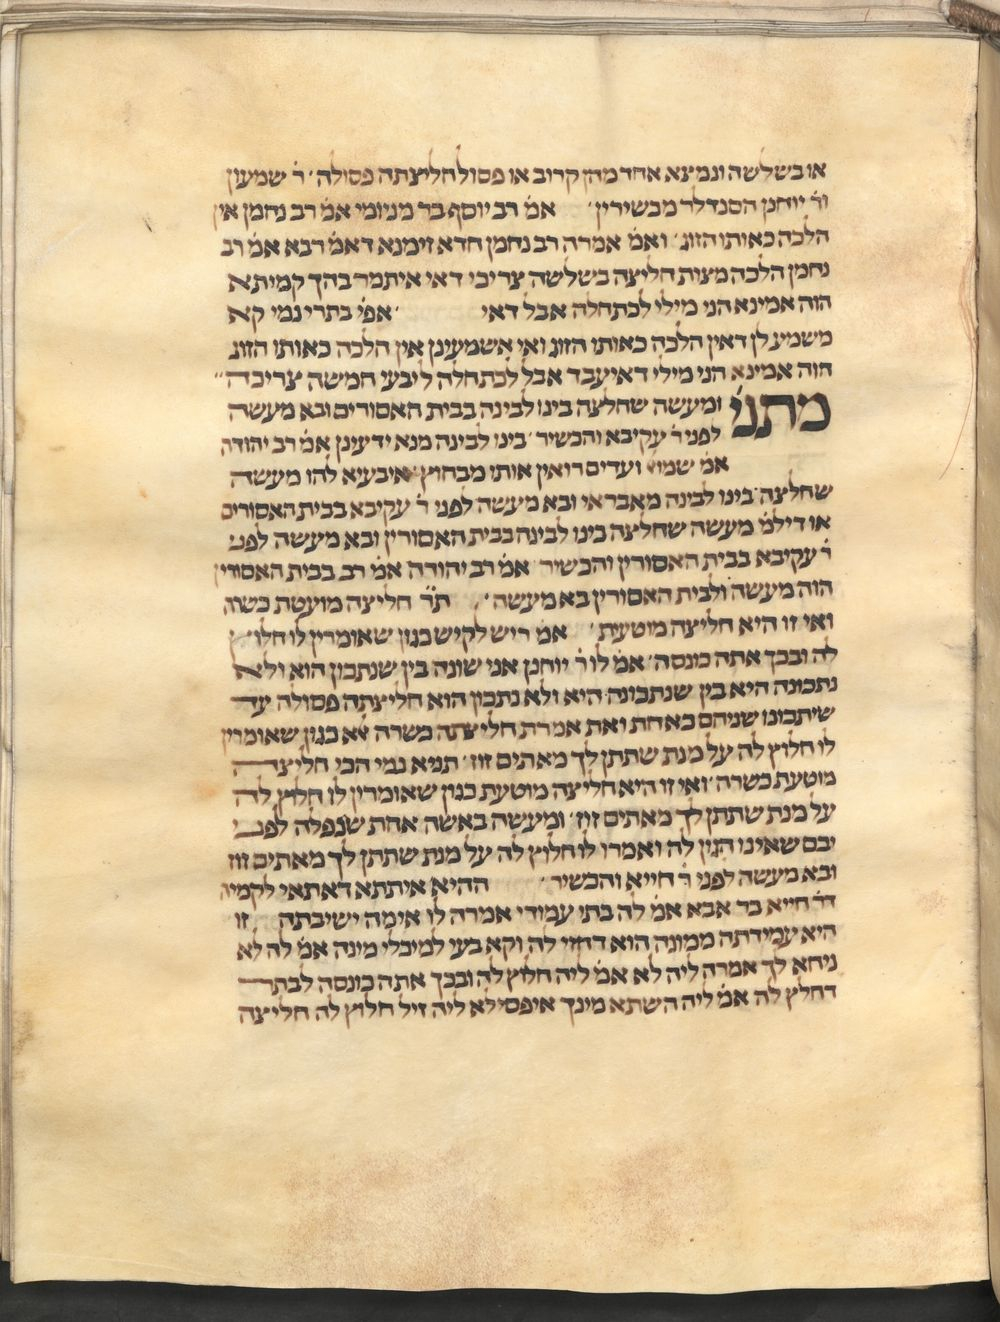 או בשלשה ונמצא אחד מהן קרוב או פסול חליצתה פסולה׳ ר׳ שמעון
ור׳ יוחנן הסנדלר מכשירין׳ אמ׳ רב יוסף בר מניומי אמ׳ רב נחמן אין
הלכה כאותו הזוג׳ ואמ׳ אמרה רב נחמן חדא זימנא דאמ׳ רבא אמ׳ רב
נחמן הלכה מצות חליצה בשלשה צריכי דאי איתמר בהך קמיתא
הוה אמינא הני מילי לכתחלה אבל דאי ׳ אפי׳ בתרי נמי קא
משמע לן דאין הלכה כאותו הזוג ואי אשמעינן אין הלכה כאותו הזוג
הוה אמינא הני מילי דאיעבד אבל לכתחלה ליבעי חמשה צריכה׳׳
מתני׳ ומעשה שחלצה בינו לבינה בבית האסורים ובא מעשה
לפני ר׳ עקיבא והכשיר׳ בינו לבינה מנא ידעינן אמ׳ רב יהודה
אמ׳ שמוא׳ ועדים רואין אותו מבחוץ׳ איבעיא להו מעשה
שחלצה בינו לבינה מאבראי ובא מעשה לפני ר׳ עקיבא בבית האסורים
או דילמ׳ מעשה שחלצה בינו לבינה בבית האסורין ובא מעשה לפני
ר׳ עקיבא בבית האסורין והכשיר׳ אמ׳ רב יהודה אמ׳ רב בבית האסורין
הוה מעשה ולבית האסורין בא מעשה׳ ת׳ר׳ חליצה מוטעת כשרה
ואי זו היא חליצה מוטעת׳ אמ׳ ריש לקיש כגון שאומרין לו חלוץ
לה ובכך אתה כונסה׳ אמ׳ לו ר׳ יוחנן אני שונה בין שנתכון הוא ולא
נתכונה היא בין שנתכונה היא ולא נתכון הוא חליצתה פסולה עד
שיתכונו שניהם כאחת ואת אמרת חליצתה כשרה לא כגון שאומרין
לו חלוץ לה על מנת שתתן לך מאתים זוז׳ תניא נמי הכי חליצה
מוטעת כשרה׳ ואי זו היא חליצה מוטעת כגון שאומרין לו חלוץ לה
על מנת שתתן לך מאתים זוז׳ ומעשה באשה אחת שנפלה לפני
יבם שאינו הגון לה ואמרו לו חלוץ לה על מנת שתתן לך מאתים זוז
ובא מעשה לפני ר׳ חייא והכשיר׳ ההיא איתתא דאתאי לקמיה
דר׳ חייא בר אבא אמ׳ לה בתי עמודי אמרה לו אימה ישיבתה זו
היא עמידתה ממונה הוא דחזי לה וקא בעי למיכלי מינה אמ׳ לה לא
ניחא לך אמרה ליה לא אמ׳ ליה חלוץ לה ובכך אתה כונסה לבתר
דחלץ לה אמ׳ ליה השתא מינך איפסילא ליה זיל חלוץ לה חליצה